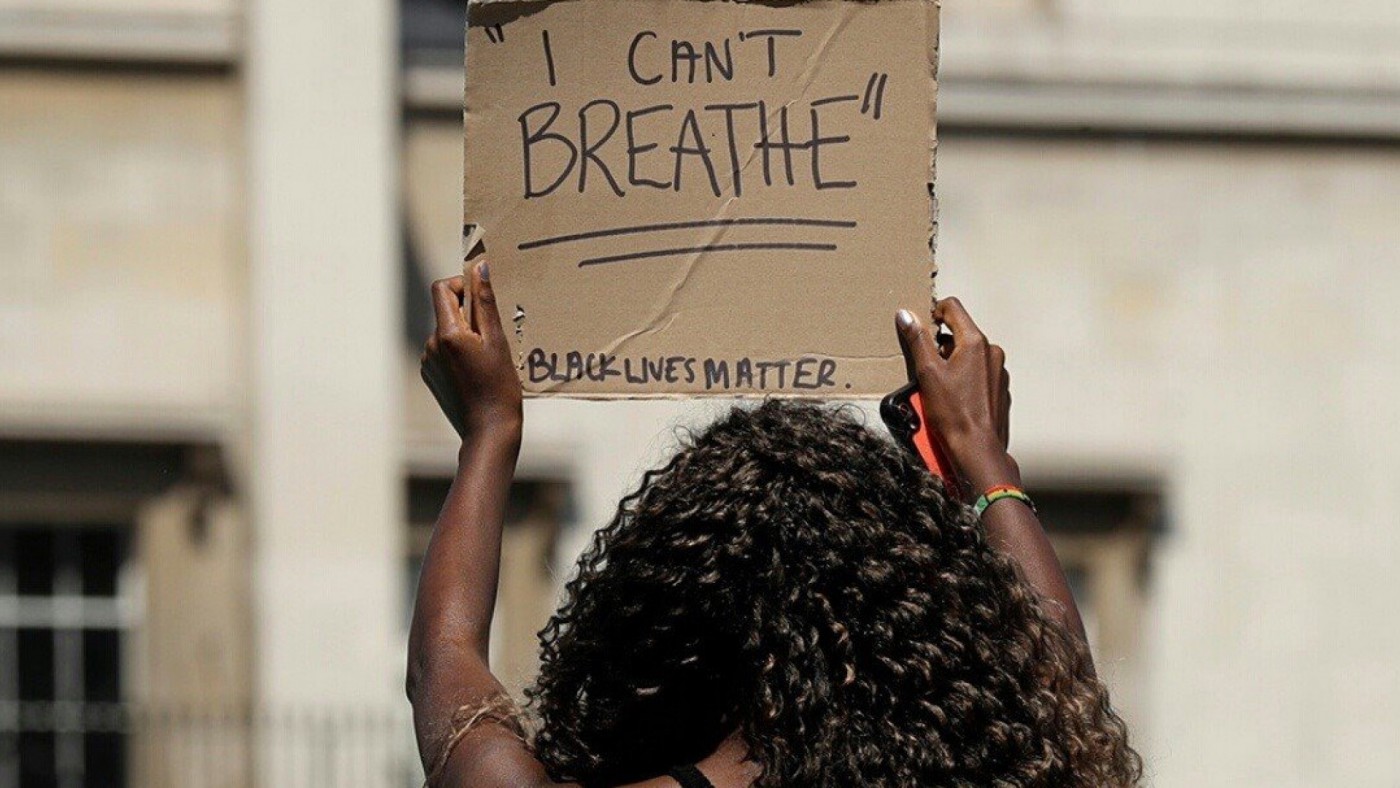 " I CAN'T
BREATHE"
BLACK LIVES MATTER.